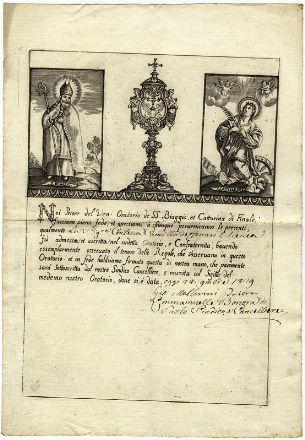 Noi Priore del Ven. Oratorio de SS. Biaggio, et Catterina di Finale,
facciamo piena fede, et attestiamo, à chiunque perveniranno le presenti,
qualmente
sia admessa, et ascritta nel nostro Oratorio, e Confraternita, havendo
esemplarmente osservato il tenore delle Regole, che s'osservano in questo
Oratorio, et in fede habbiamo firmata questa di nostra mano, che parimente
sarà sottoscritta dal nostro Sindico Cancelliere, e munita col Sigillo del
medemo nostro Oratorio, dove si è data, oggi 1819
Priore
Emmanuelle
Paolo Sindico e Cancelliere